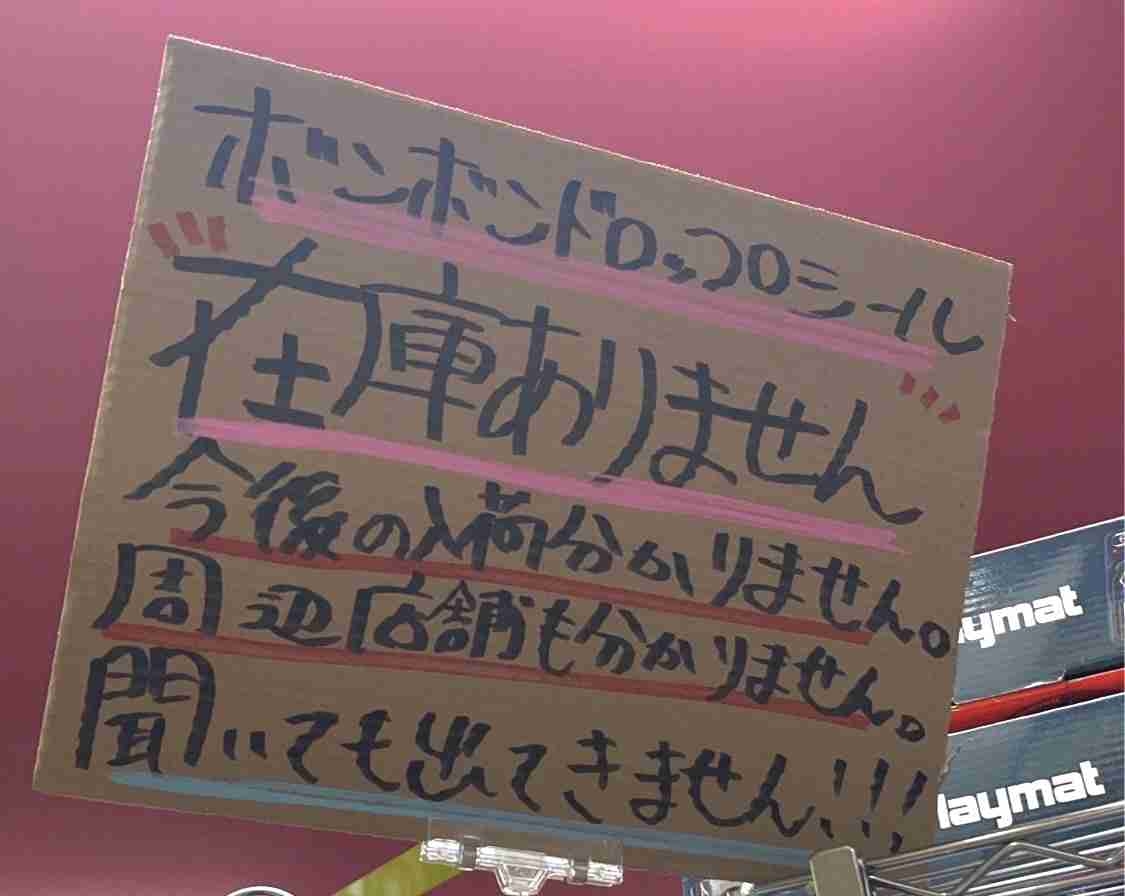 ボンボンドロップシール
在庫ありません
今後の入荷分かりません。
周辺店舗も分かりません。
聞いても出てきません!!!
ymat
laymat